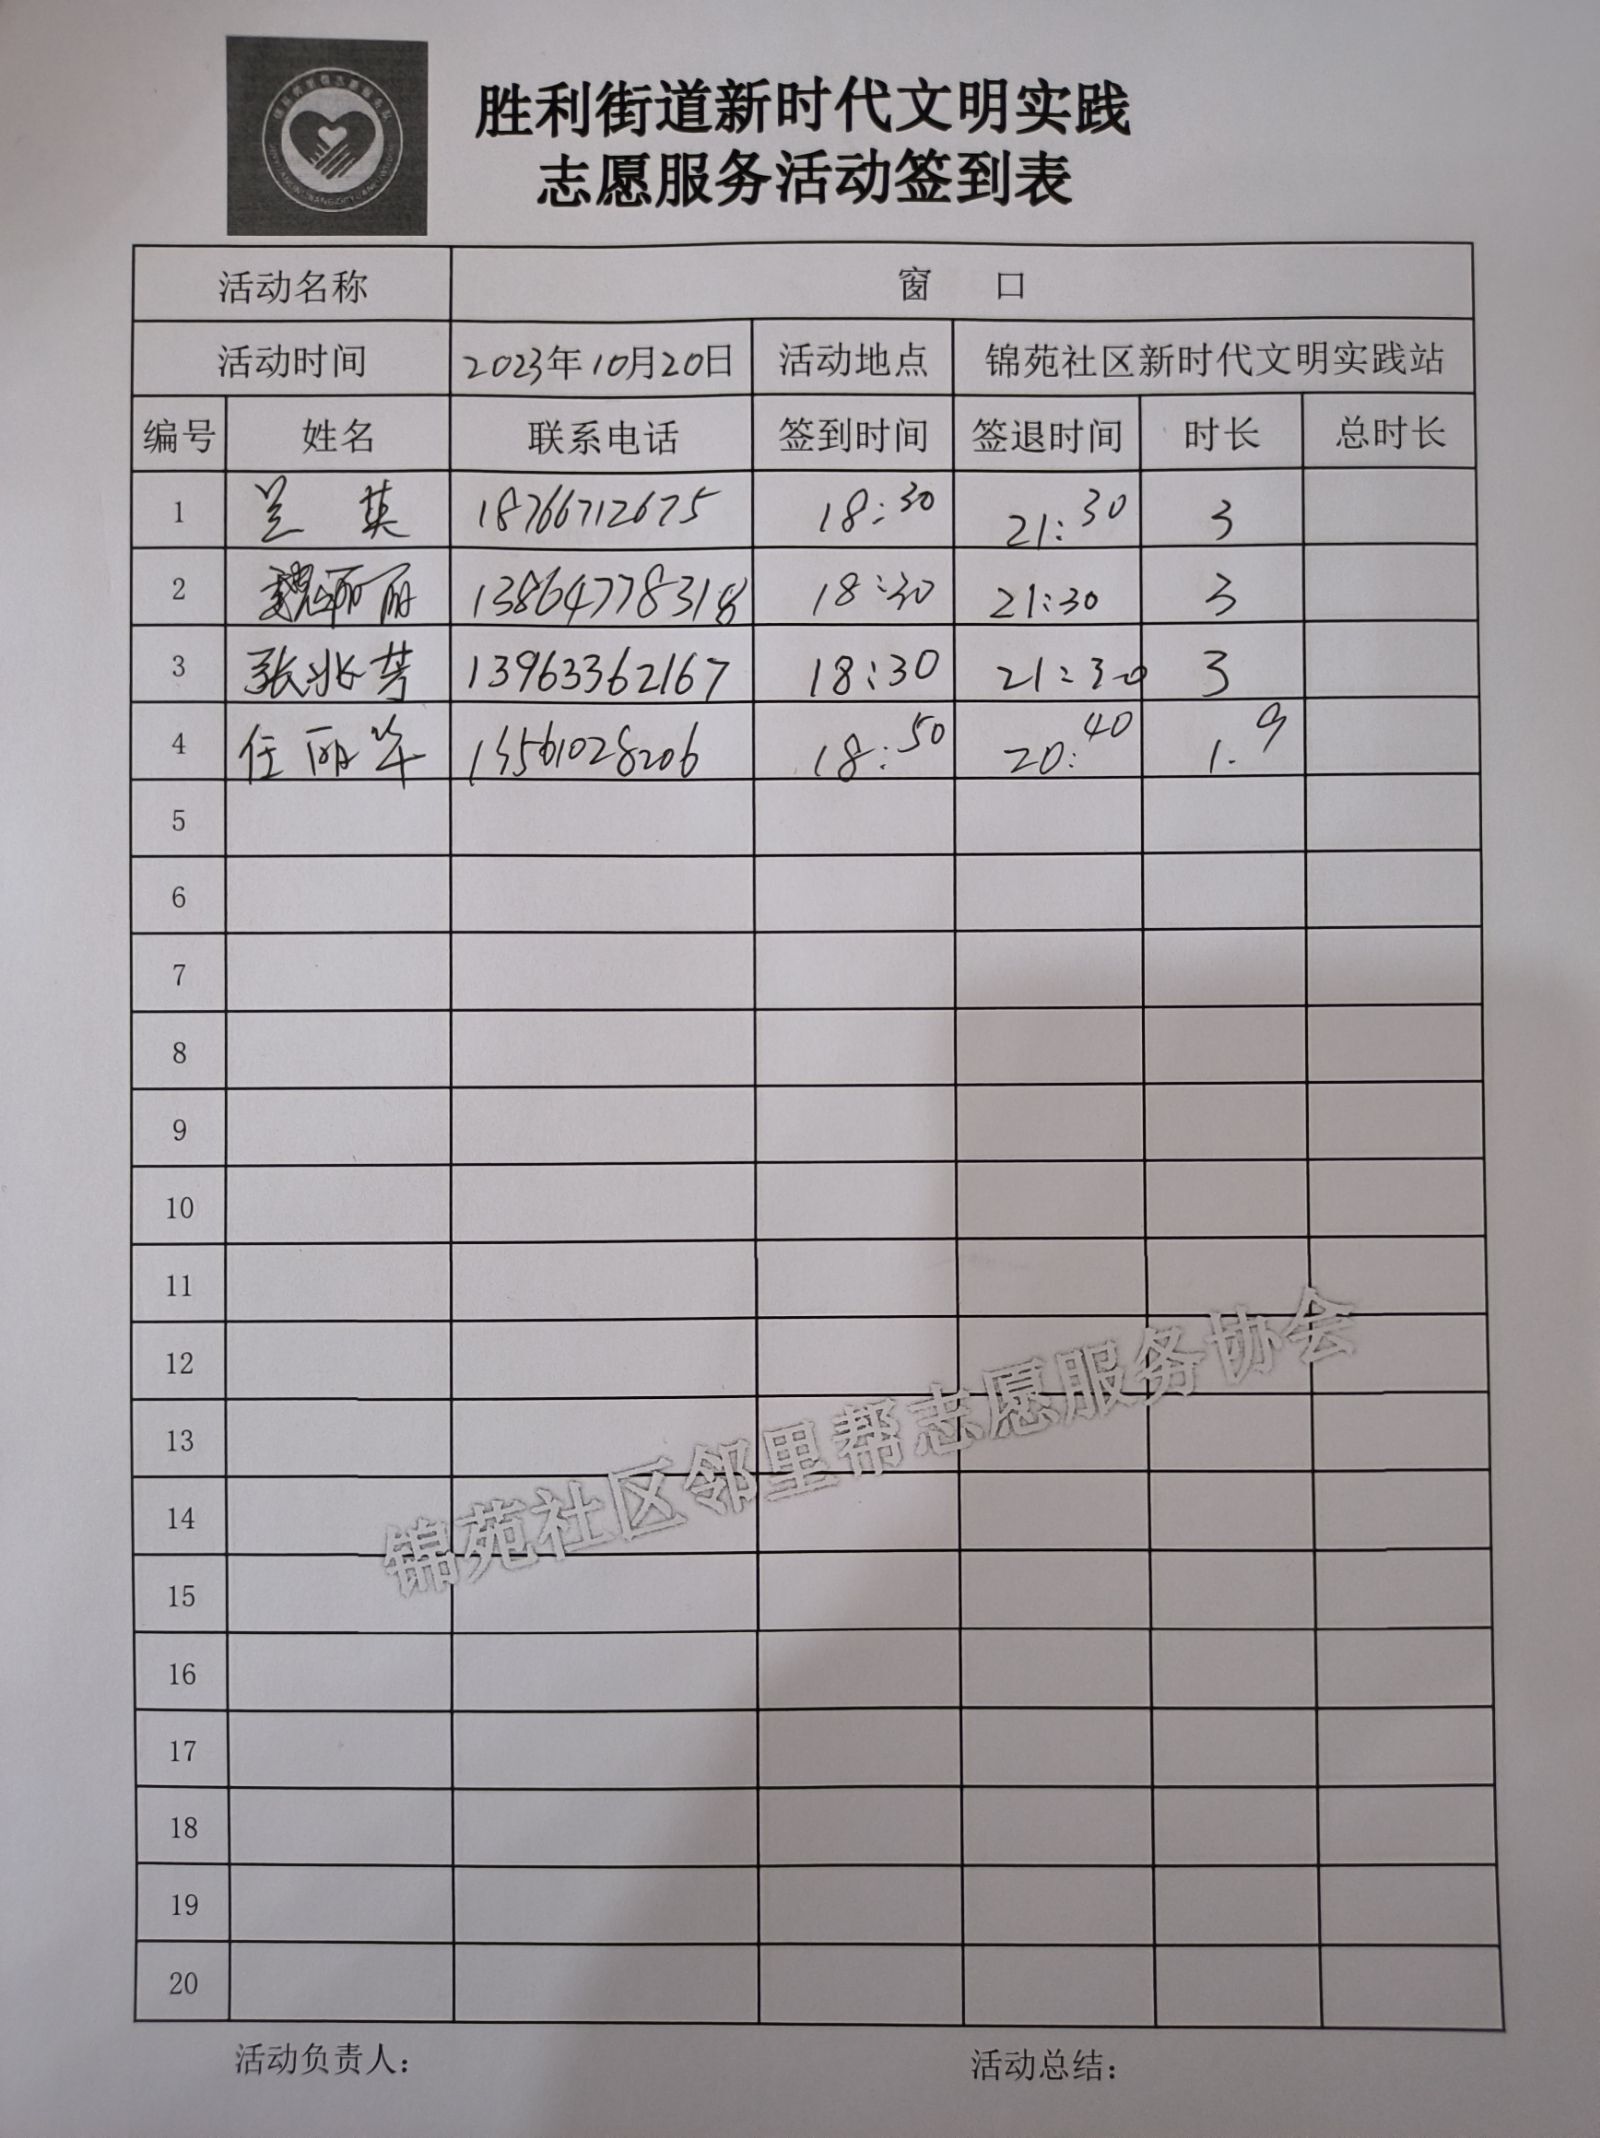 胜利街道新时代文明实践
志愿服务活动签到表
活动名称 窗 口
活动时间 2023年10月20日 活动地点 锦苑社区新时代文明实践站
编号 姓名 联系电话 签到时间 签退时间 时长 总时长
1 兰 英 18766712675 18:30 21:30 3
2 魏丽丽 13864778318 18:30 21:30 3
3 张兆芳 13963362167 18:30 21:30 3
4 任丽华 13561028206 18:50 20:40 1.9
5
6
7
8
9
10
11
12
13
14
15
16
17
18
19
20
锦苑社区邻里帮志愿服务协会
活动负责人： 活动总结：